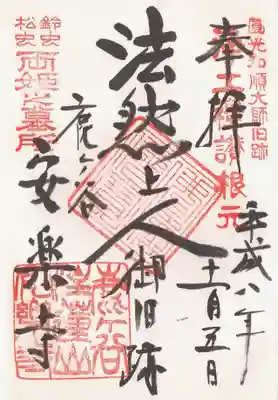 圓光和順大師旧跡
奉拝
讃根元
平成八年
十一月五日
法然上人御旧跡
鹿ヶ谷
安楽寺
鈴虫
松虫
両姫之墓所